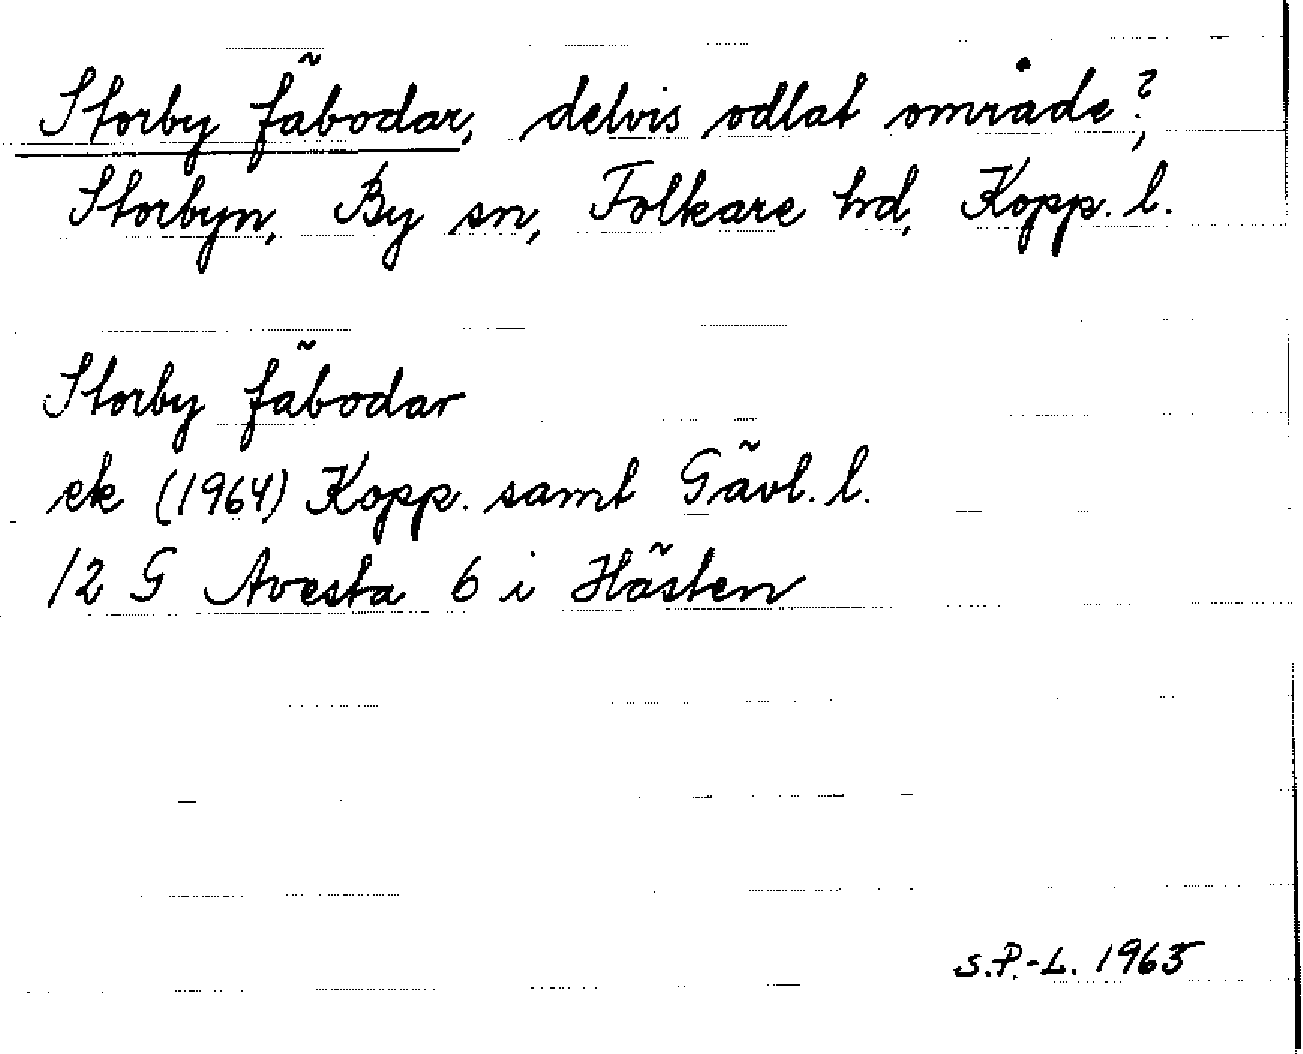 Storby fäbodar, delvis odlat område?,
Storbyn, By sn, Folkare hd, Kopp. l.
Storby fäbodar
ek (1964) Kopp. samt Gävl. l.
12 G Avesta 6 i Hästen
S.P.-L. 1965